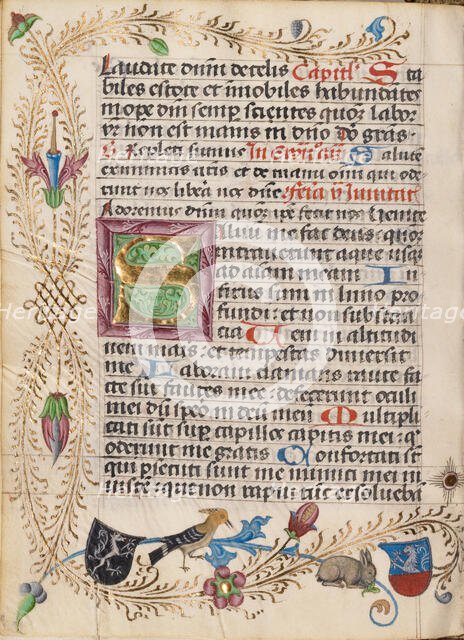 Laudate dnm de celis Capitlm Sta
biles estote et imobiles habundates
in ope dni semp scientes quor labor
vr non est inanis in dno Do gras
Repleti sumus
ex inimicis nris et de manu oim qui ode
runt nos libera nos dne feria v Inuitat
Adoremus dnm quor ipe fecit nos Venite
Saluu me fac deus: quor
intrauerunt aque usqz
ad aiam meam In
fixus sum in limo pro
fundi: et non substan
cia Ueni in altitudi
nem maris: et tempestas dimersit
me Laboraui clamans rauce facte
sut fauces mee: defecerunt oculi
mei du spero in deu meu Multipli
cati sut sup capillos capitis mei: q
oderunt me gratis Confortati st
qui psecuti sunt me inimici mei in
iuste: que non rapui tuc exsolueba
Heritage
Heritage